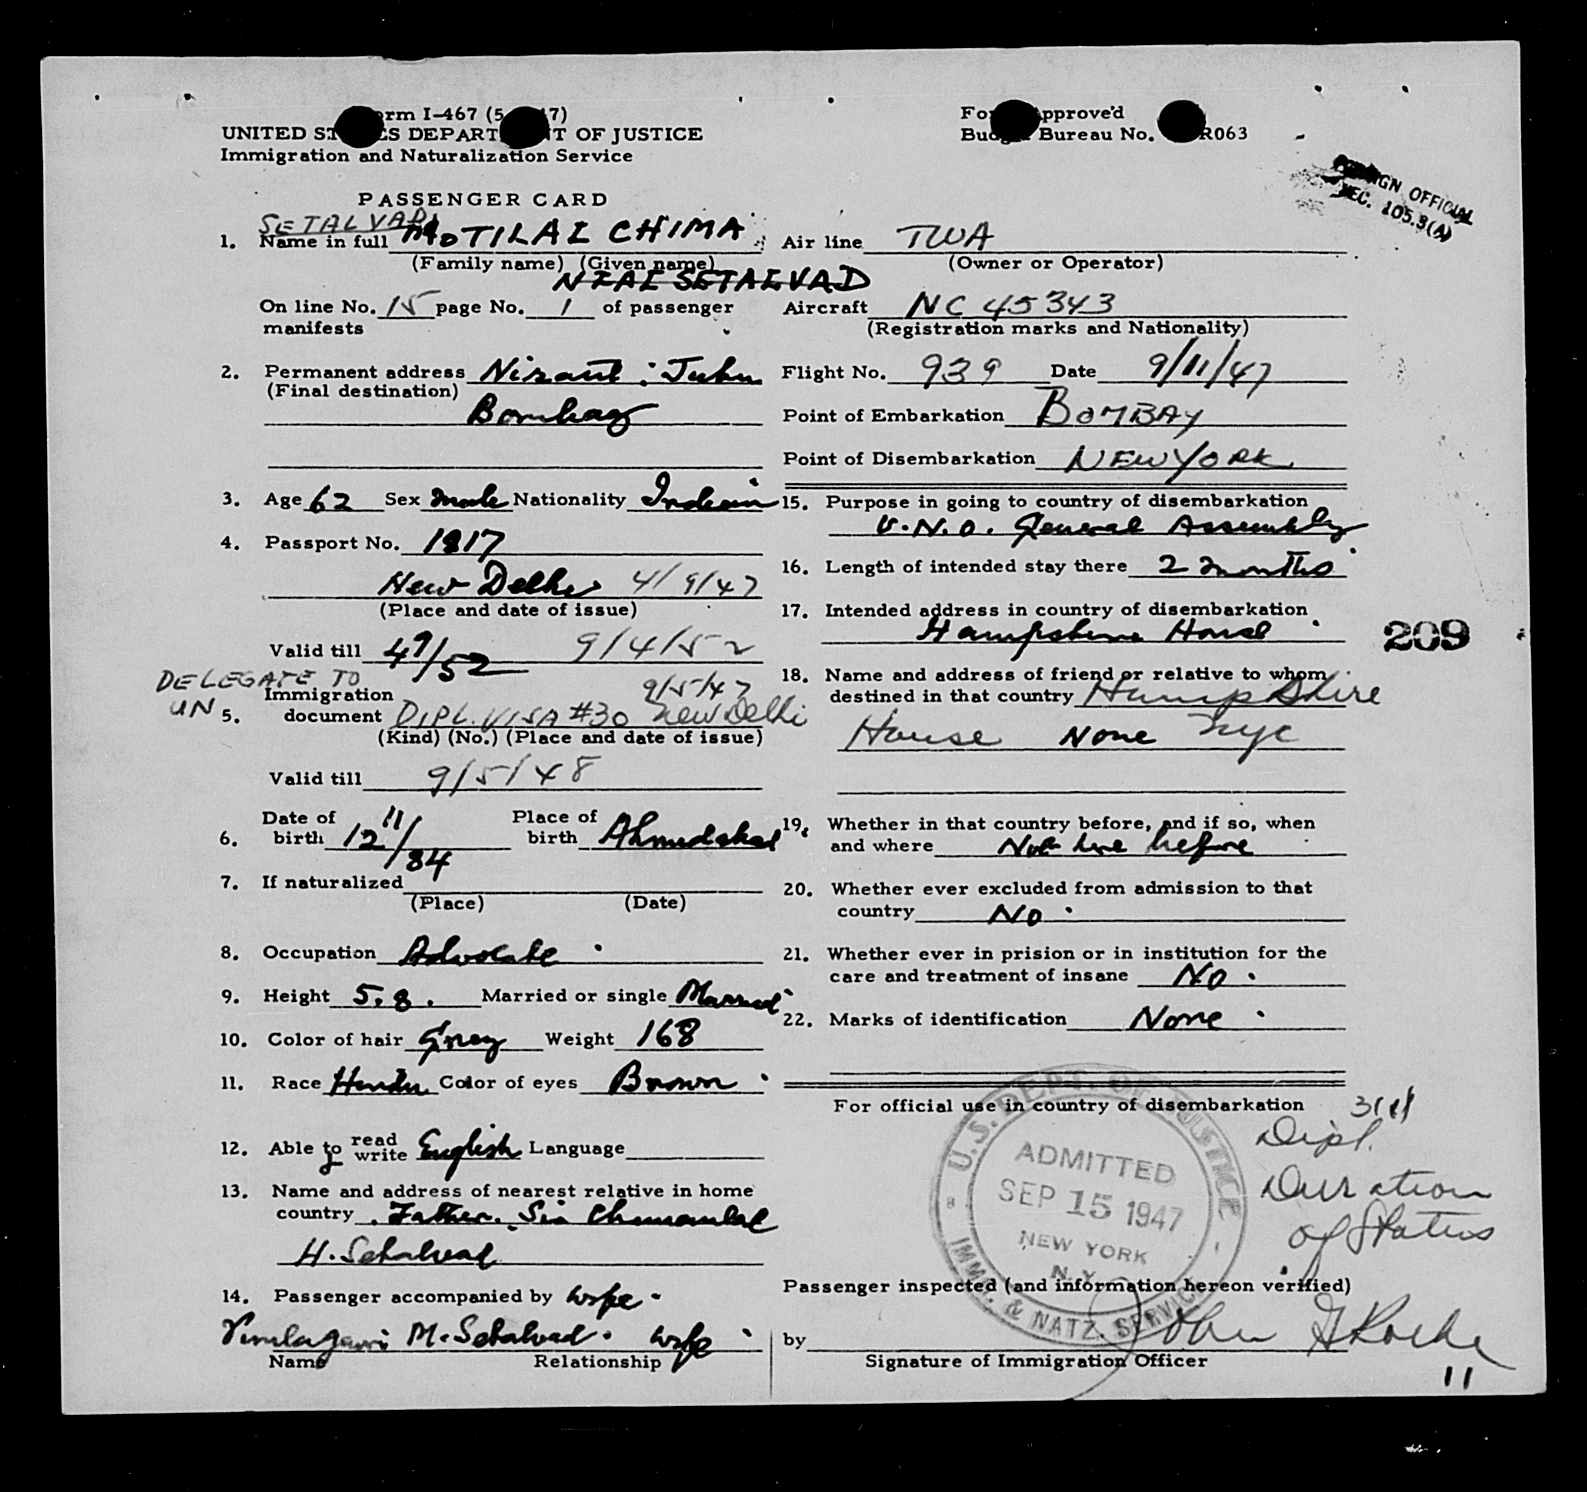 Form I-467 (5 47)
UNITED STATES DEPARTMENT OF JUSTICE
Immigration and Naturalization Service
Form Approved
Budget Bureau No. R063
FOREIGN OFFICIAL
SEC. 105.3(A)
PASSENGER CARD
SETALVAD,
1. Name in full MOTILAL CHIMA
(Family name) (Given name)
NLAL SETALVAD
On line No. 15 page No. 1 of passenger
manifests
2. Permanent address Nirant: Juhu
(Final destination)
Bombay
3. Age 62 Sex Male Nationality Indian
4. Passport No. 1817
New Delhi 4/9/47
(Place and date of issue)
Valid till 4 9/52 9/4/52
DELEGATE TO
UN
9/5/47
Immigration
5. document DIPL. VISA #30 New Delhi
(Kind) (No.) (Place and date of issue)
Valid till 9/5/48
6. Date of birth 12 11/84 Place of birth Ahmedabad
7. If naturalized
(Place) (Date)
8. Occupation Advocate.
9. Height 5.8. Married or single Married
10. Color of hair Grey Weight 168
11. Race Hindu Color of eyes Brown.
12. Able to read write English Language
13. Name and address of nearest relative in home
country. Father. Sir Chimanlal
H. Setalvad
14. Passenger accompanied by wife.
Vimlagauri M. Setalvad. wife.
Name Relationship
Air line TWA
(Owner or Operator)
Aircraft NC 45343
(Registration marks and Nationality)
Flight No. 939 Date 9/11/47
Point of Embarkation BOMBAY
Point of Disembarkation NEW YORK
15. Purpose in going to country of disembarkation
U.N.O. General Assembly
16. Length of intended stay there 2 months.
17. Intended address in country of disembarkation
Hampshire House.
209
18. Name and address of friend or relative to whom
destined in that country Hampshire
House None NYC
19. Whether in that country before, and if so, when
and where Not here before
20. Whether ever excluded from admission to that
country No.
21. Whether ever in prision or in institution for the
care and treatment of insane No.
22. Marks of identification None.
For official use in country of disembarkation
Dipl.
Duration
of Status
U.S. DEPT. OF JUSTICE
ADMITTED
SEP 15 1947
NEW YORK
N.Y.
IMM. & NATZ. SERVICE
Passenger inspected (and information hereon verified)
by John G Roche
Signature of Immigration Officer
11